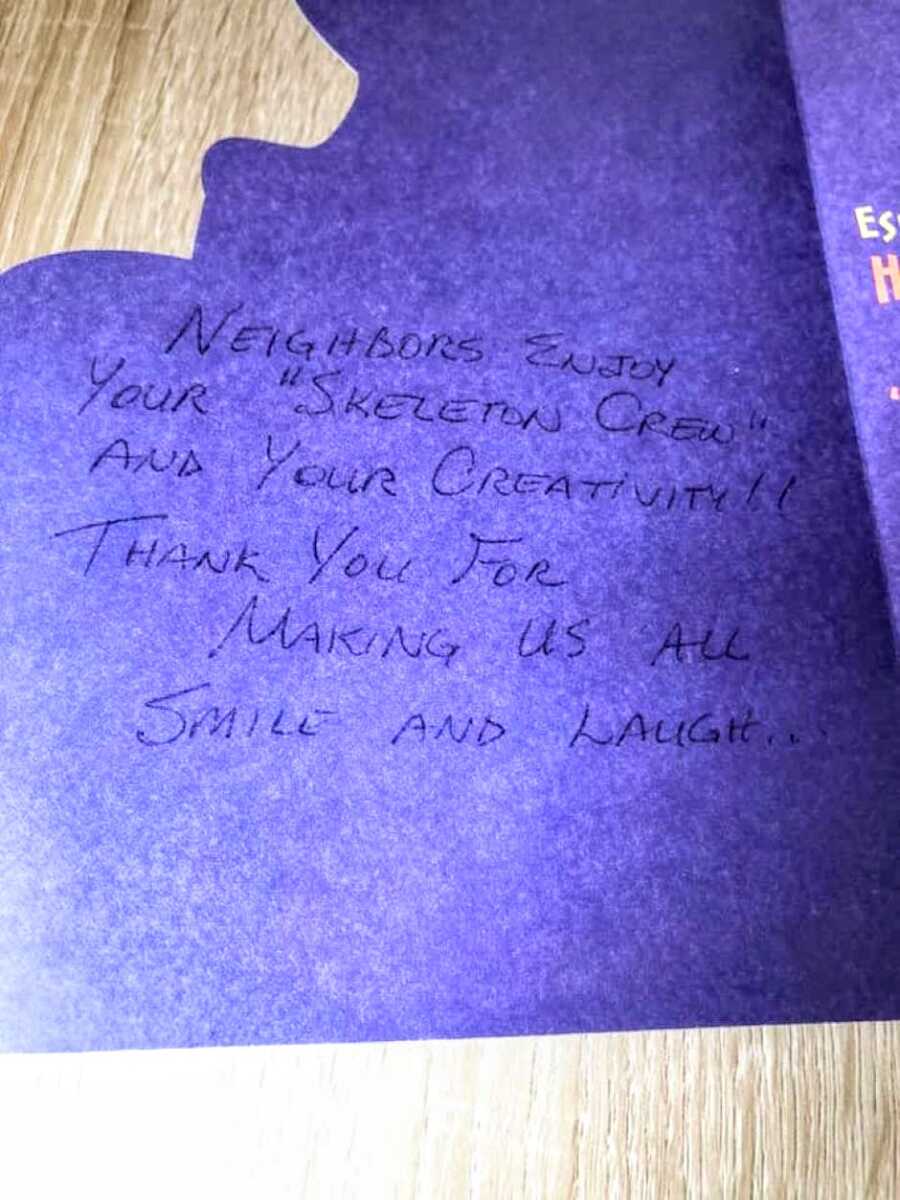 Neighbors Enjoy
Your "Skeleton Crew"
And Your Creativity!!
Thank You For
Making us all
Smile and Laugh...
Es
H